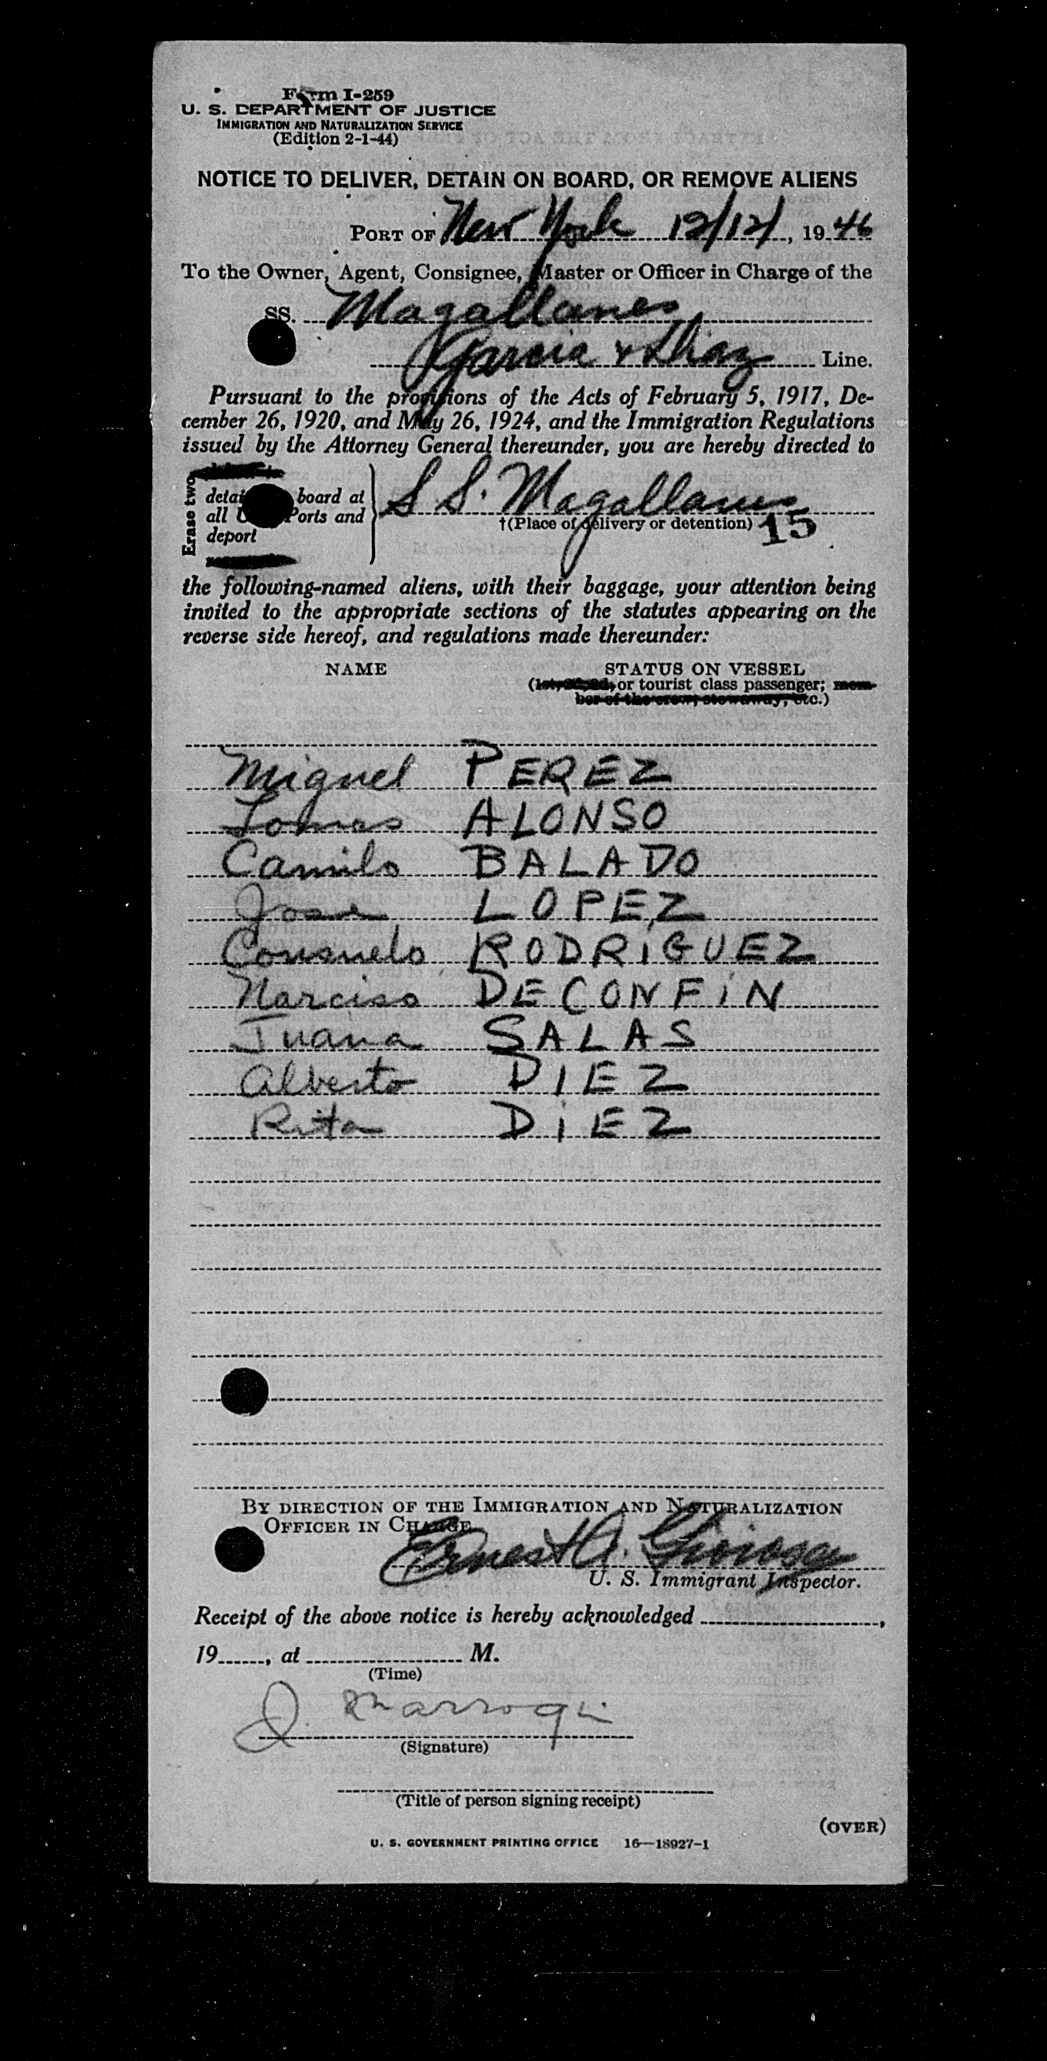 Form I-259
U. S. DEPARTMENT OF JUSTICE
IMMIGRATION AND NATURALIZATION SERVICE
(Edition 2-1-44)
NOTICE TO DELIVER, DETAIN ON BOARD, OR REMOVE ALIENS
PORT OF New York 12/12/, 1946
To the Owner, Agent, Consignee, Master or Officer in Charge of the
SS. Magallanes
Garcia & Diaz Line.
Pursuant to the provisions of the Acts of February 5, 1917, De-
cember 26, 1920, and May 26, 1924, and the Immigration Regulations
issued by the Attorney General thereunder, you are hereby directed to
Erase two
detain board at
all U. Ports and
deport
S S. Magallanes
†(Place of delivery or detention) 15
the following-named aliens, with their baggage, your attention being
invited to the appropriate sections of the statutes appearing on the
reverse side hereof, and regulations made thereunder:
NAME STATUS ON VESSEL
(1st, 2d, 3d, or tourist class passenger; mem-
ber of the crew, stowaway, etc.)
Miguel PEREZ
Tomas ALONSO
Camilo BALADO
Jose LOPEZ
Consuelo RODRIGUEZ
Narciso DECONFIN
Juana SALAS
Alberto DIEZ
Rita DIEZ
BY DIRECTION OF THE IMMIGRATION AND NATURALIZATION
OFFICER IN CHARGE
Ernest A. Gioiosa
U. S. Immigrant Inspector.
Receipt of the above notice is hereby acknowledged ,
19 , at M.
(Time)
J. Marroqui
(Signature)
(Title of person signing receipt)
(OVER)
U. S. GOVERNMENT PRINTING OFFICE 16—18927-1